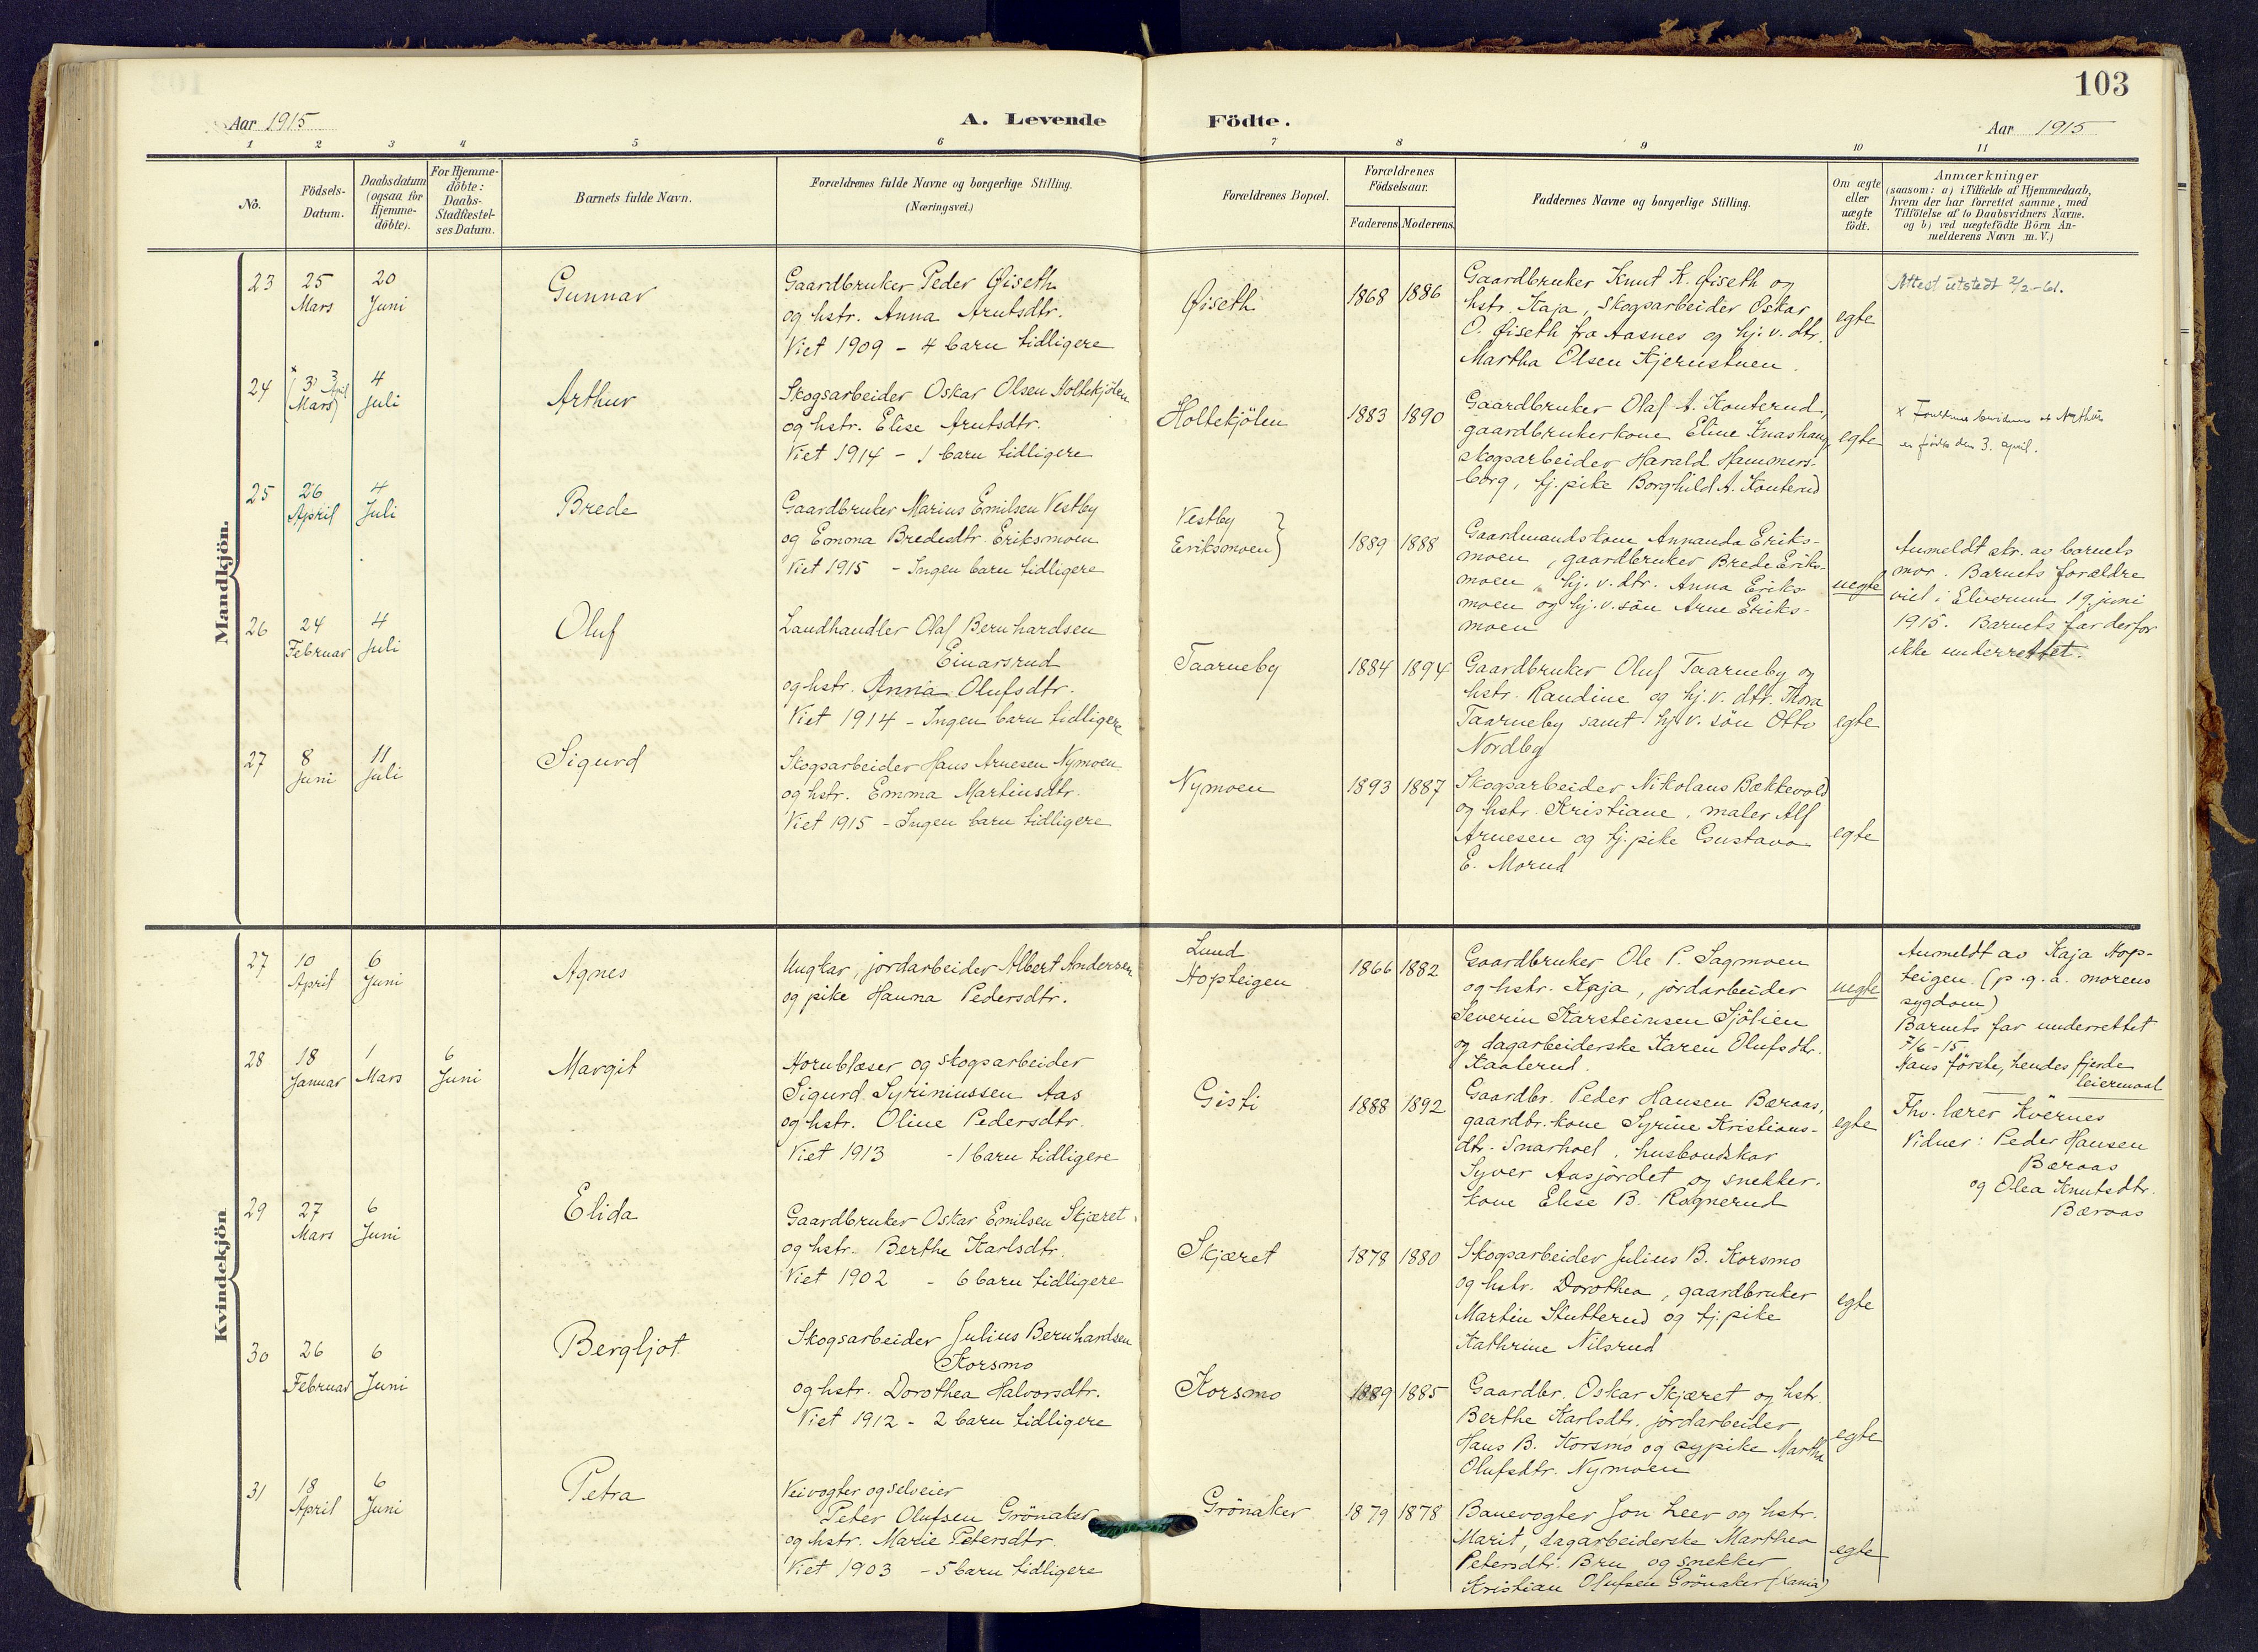 103
Aar 1915
A. Levende Födte.
Aar 1915
1 2 3 4 5 6 7 8 9 10 11
No.
Födsels-
Datum.
Daabsdatum
(ogsaa for
Hjemme-
döbte).
For Hjemme-
döbte:
Daabs-
Stadfæstel-
ses Datum.
Barnets fulde Navn.
Forældrenes fulde Navne og borgerlige Stilling.
(Næringsvei.)
Forældrenes Bopæl.
Forældrenes
Födselsaar.
Faderens Moderens.
Faddernes Navne og borgerlige Stilling.
Om ægte
eller
uægte
födt.
Anmærkninger
(saasom: a) i Tilfælde af Hjemmedaab,
hvem der har forrettet samme, med
Tilföielse af to Daabsvidners Navne,
og b) ved uægtefödte Börn An-
melderens Navn m. V.)
Mandkjön.
23
25
Mars
20
Juni
Gunnar
Gaardbruker Peder Øiseth
og hstr. Anna Arntsdtr.
Viet 1909 - 4 barn tidligere
Øiseth
1868 1886
Gaardbruker Knut K. Øiseth og
hstr. Kaja, skogsarbeider Oskar
O. Øiseth fra Aasnes og hj. v. dtr.
Martha Olsen Kjernstuen.
egte
Attest utstedt 2/2-61.
24
x
(3 3 April
Mars)
4
Juli
Arthur
Skogsarbeider Oskar Olsen Holtekjölen
og hstr. Elise Arntsdtr.
Viet 1914 - 1 barn tidligere
Holtekjölen
1883 1890
Gaardbruker Olaf A. Kouterud,
gaardbrukerkone Eline Knashaug,
skogsarbeider Harald Hammers-
borg, tj. pike Borghild A. Kouterud
egte
x Arthur
er födt den 3. april.
25
26
April
4
Juli
Brede
Gaardbruker Marius Emilsen Vestby
og Emma Bredesdtr. Eriksmoen
Viet 1915 - Ingen barn tidligere
Vestby
Eriksmoen }
1889 1888
Gaardmandskone Annanda Eriks-
moen, gaardbruker Brede Eriks-
moen, hj. v. dtr. Anna Eriks-
moen og hj. v. sön Arne Eriks-
moen
uegte
Anmeldt str. av barnets
mor. Barnets forældre
viet i Elverum 19 juni
1915. Barnets far derfor
ikke underrettet.
26
24
Februar
4
Juli
Oluf
Landhandler Olaf Bernhardsen
Einarsrud
og hstr. Anna Olufsdtr.
Viet 1914 - Ingen barn tidligere
Taarneby
1884 1894
Gaardbruker Oluf Taarneby og
hstr. Randine og hj. v. dtr. Thora
Taarneby samt hj. v. sön Otto
Nordby
egte
27
8
Juni
11
Juli
Sigurd
Skogsarbeider Hans Arnesen Nymoen
og hstr. Emma Martinsdtr.
Viet 1915 - Ingen barn tidligere
Nymoen
1893 1887
Skogsarbeider Nikolaus Bækkevold
og hstr. Kristiane, maler Alf
Arnesen og tj. pike Gustava
E. Morud
egte
Kvindekjön
27
10
April
6
Juni
Agnes
Ungkar, jordarbeider Albert Andersen
og pike Hanna Pedersdtr.
Lund
Hopteigen
1866 1882
Gaardbruker Ole P. Sagmoen
og hstr. Kaja, jordarbeider
Severin Karsteinsen Sjölien
og dagarbeiderske Karen Olufsdtr.
Kaaterud.
uegte
Anmeldt av Kaja Hop-
teigen. (p. g. a. morens
sygdom)
Barnets far underrettet
7/6-15
Hans förste, hendes fjerde
leiermaal
28
18
Januar
1
Mars
6
Juni
Margit
Hornblæser og skogsarbeider
Sigurd Syrinussen Aas
og hstr. Oline Pedersdtr.
Viet 1913 - 1 barn tidligere
Gisti
1888 1892
Gaardbr. Peder Hansen Bæraas,
gaardbr. kone Syrine Kristians-
dtr. Snarhoel, husbondskar
Syver Aasjordet og snekker-
kone Elise B. Rognerud
egte
Fhv. lærer Kvernes
Vidner: Peder Hansen
Bæraas
og Olea Knutsdtr.
Bæraas
29
27
Mars
6
Juni
Elida
Gaardbruker Oskar Emilsen Skjæret
og hstr. Berthe Karlsdtr.
Viet 1902 - 6 barn tidligere
Skjæret
1878 1880
Skogsarbeider Julius B. Korsmo
og hstr. Dorothea, gaardbruker
Martin Stutterud og tj. pike
Kathrine Nilsrud
egte
30
26
Februar
6
Juni
Bergljot
Skogsarbeider Julius Bernhardsen
Korsmo
og hstr. Dorothea Halvorsdtr.
Viet 1912 - 2 barn tidligere
Korsmo
1889 1885
Gaardbr. Oskar Skjæret og hstr.
Berthe Karlsdtr. jordarbeider
Hans B. Korsmo og sypike Martha
Olufsdtr. Nymoen
egte
31
18
April
6
Juni
Petra
Veivogter og selveier
Peter Olufsen Grönaker
og hstr. Marie Petersdtr.
Viet 1903 - 5 barn tidligere
Grönaker
1879 1878
Banevogter Jon Leer og hstr.
Marit, dagarbeiderske Marthea
Petersdtr. Bru og snekker
Kristian Olufsen Grönaker
egte